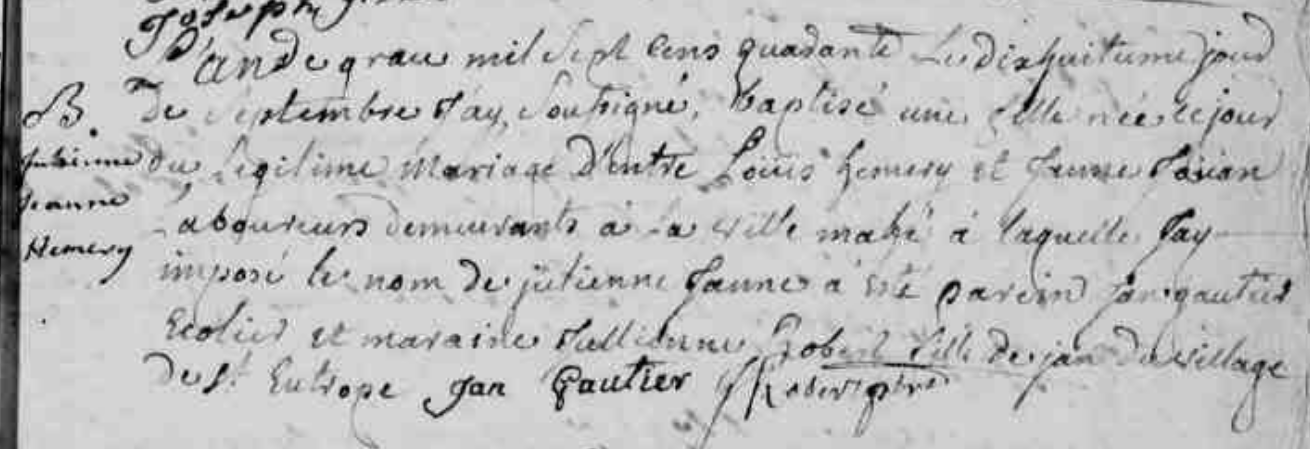 Joseph
L'an de grace mil sept cens quarante Le dixhuitieme jour
B. de septembre J'ay, soussigné, baptisé une fille née ce jour
Julienne du legitime mariage D'entre Louis hemery et Janne
Jeanne Laboureurs demeurants à La ville mahé à laquelle Jay
Hemery imposé le nom de julienne Janne a été parein jan gautier
Ecolier et maraine Jullienne Robert fille de jan du village
de st Eutrope Jan Gautier Robert ptre